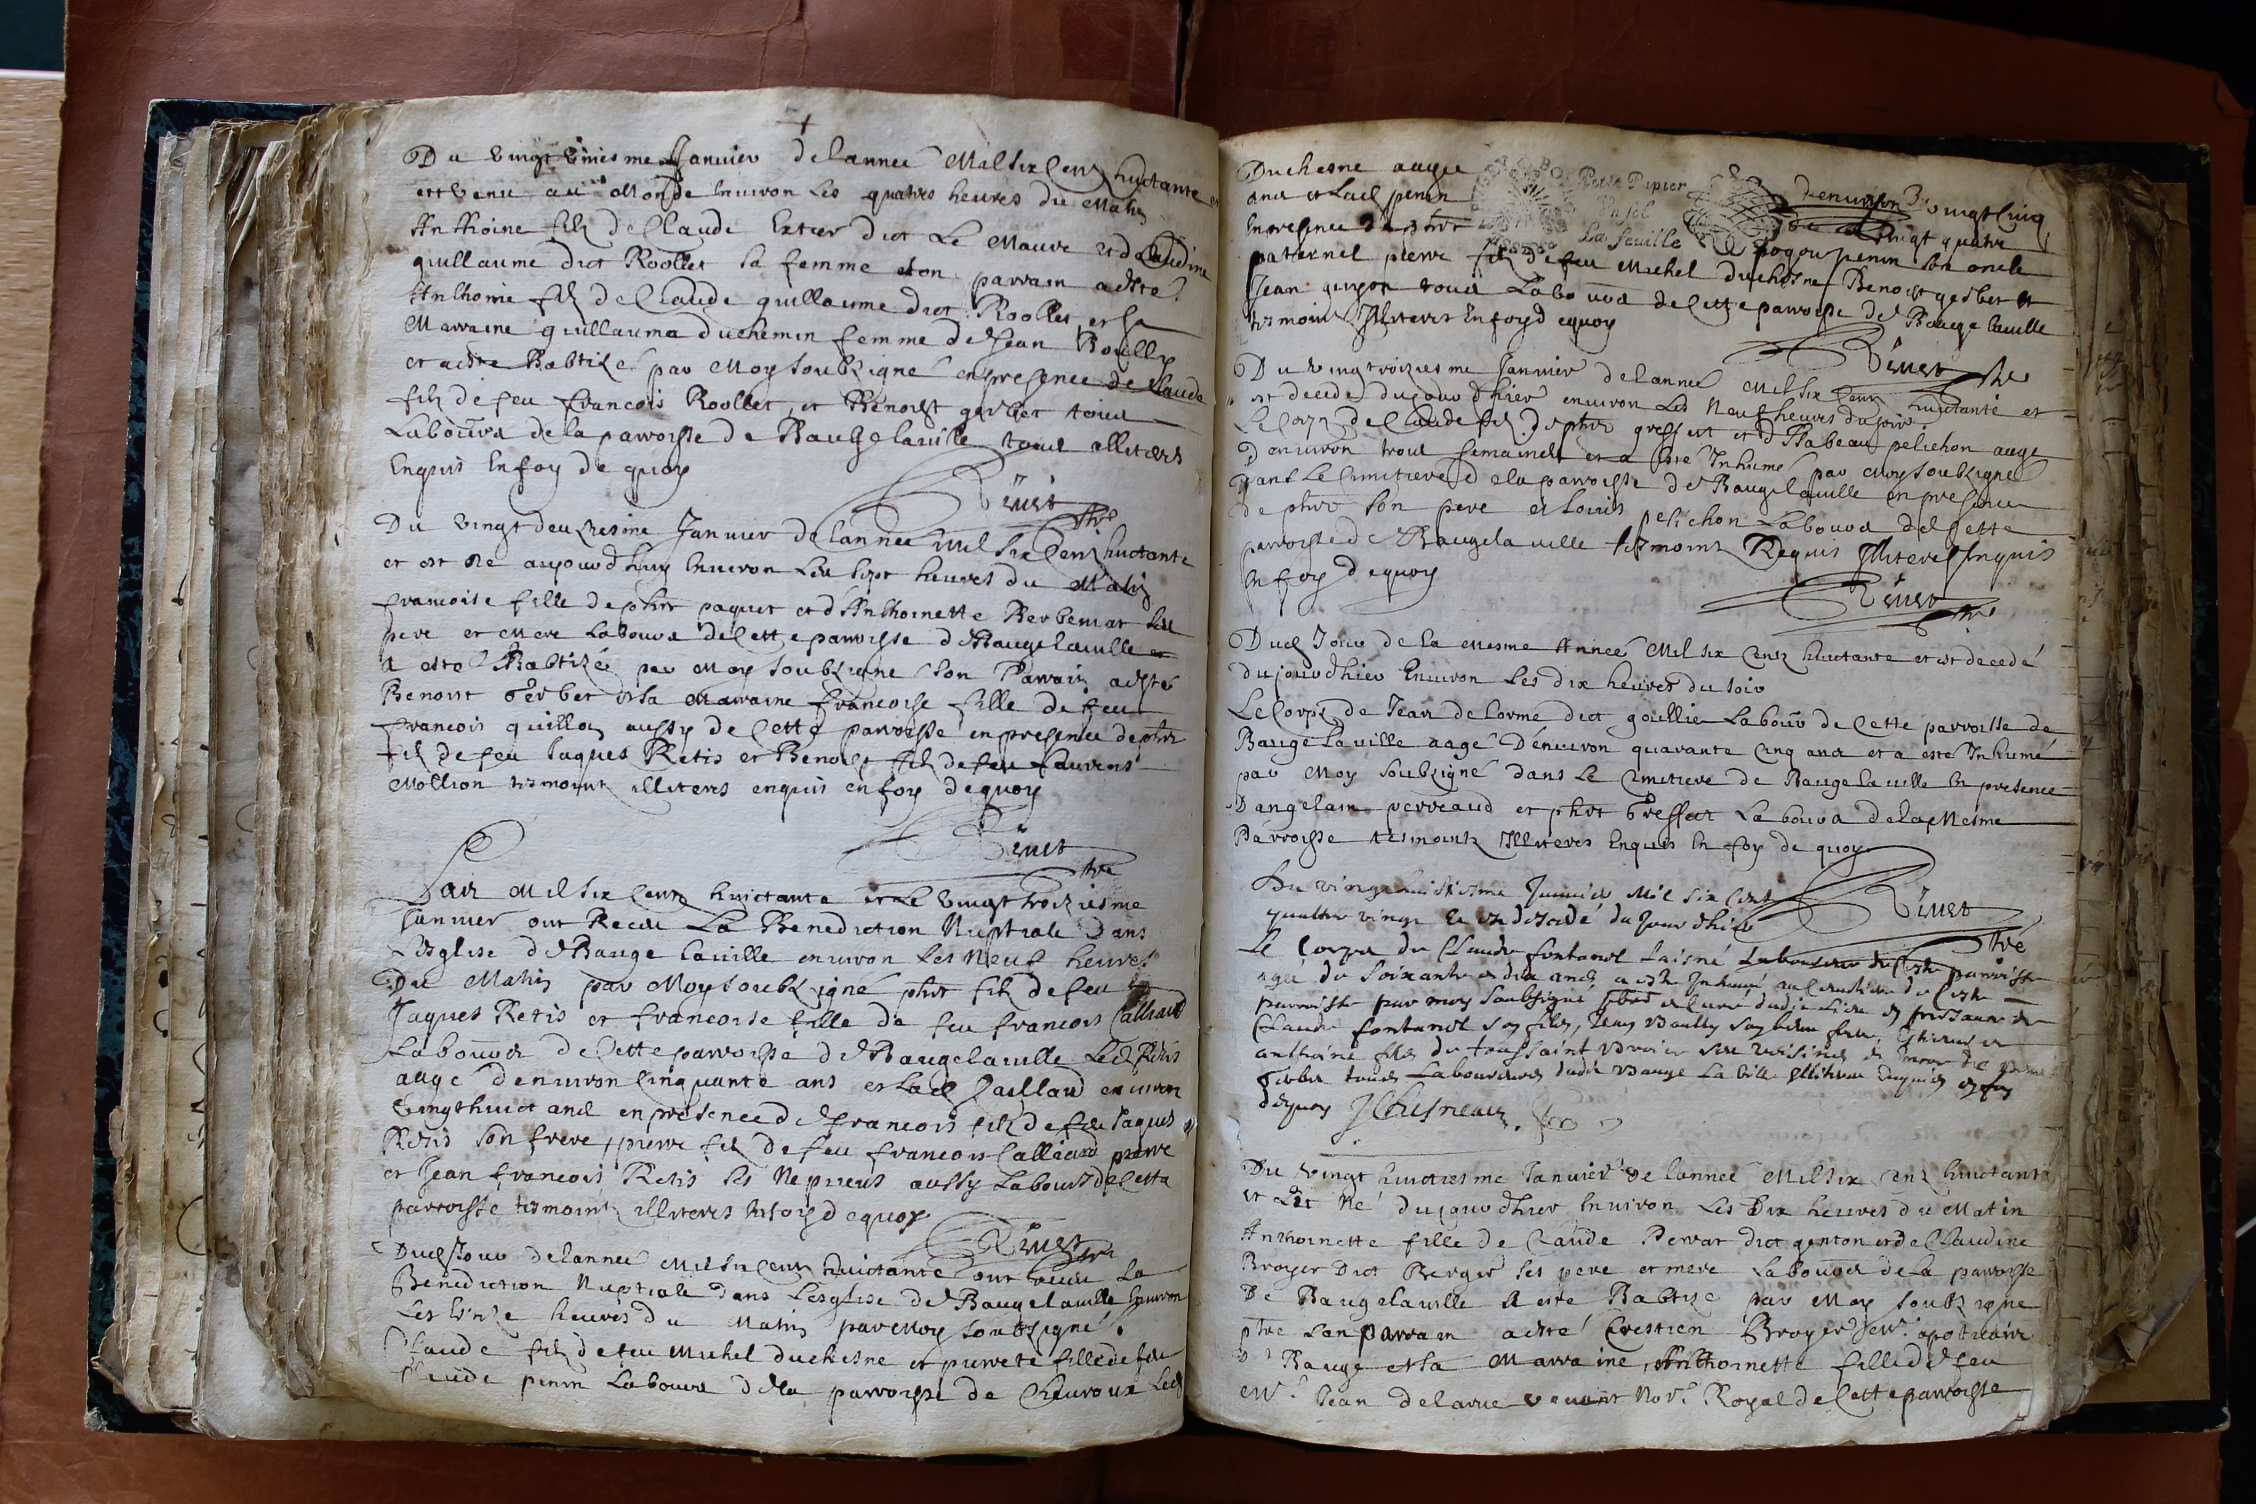 Du vingt uniesme Janvier de lannee Mil six Cents huictante et
est venu au Monde environ les quatres heures du Matin
Anthoine filz de Claude Extier dict Le Mauvre et d Claudine
guillaume dict Roollet sa femme son parrain a este
Anthoine filz de Claude guillaume dict Roollet et sa
Marraine guillauma duchemin femme de Jean Boully
et a este Babtizé par Moy soubzigné en presence de Claude
filz de feu francois Roollet, et Benoist gerbet tous
Labour. de la parroisse de Baugé la ville tous illiteres
Enquis En foy de quoy
Rivet ptre
Du vingt deuxiesme Janvier de lannee mil six Cents huictante
et est né aujourdhuy environ les sept heures du Matin
francoise fille de phbt paquet et d Anthoinette Berbemat ses
pere et mere Laboura de Cette parroisse de Baugé la ville et
a esté Babtizée par Moy soubzigné son Parrain a esté
Benoist Gerbet et sa Marraine francoise fille de feu
francois guillon aussy de Cette parroisse en presence de phbt
filz de feu Jaques Retis et Benoist filz de feu Laurens
Mollion tesmoins illiteres enquis en foy de quoy
Rivet ptre
Lan Mil six Cents huictante et Le vingt troiziesme
Janvier ont Receu La Benediction Nuptiale Dans
L'esglise de Baugé la ville environ les Neuf heures
Du Matin par Moy soubzigné phbt filz de feu
Jaques Retis et francoise fille de feu francois Calliard
Laboura de Cette parroisse de Baugé la ville Led Retis
aagé denviron Cinquante ans et Lad Calliard environ
vingt huict ans en presence de francois filz de feu Jaques
Retis son frere, pierre filz de feu francois Calliard pierre
et Jean francois Retis ses Nepveus aussy Labours de Cette
parroisse tesmoins illiteres En foy de quoy
Rivet ptre
Dud Jour de lannee Mil six Cents huictante ont receu La
Benediction Nuptiale dans Lesglise de Baugé la ville Environ
Les unze heures du Matin par Moy soubzigné
Claude filz de feu Michel duchesne et pierrete fille de feu
Claude penin Laboura de la parroisse de Chevroux Led
Duchesne aagé denviron vingt Cinq
ans et Lad penin de vingt quatre
En presence de phbt pogon penin son oncle
Petit Papier
Un sol
La feuille
paternel pierre filz de feu Michel duchesne Benoist gerbet et
Jean guyon tous Laboura de Cette parroisse de Baugé la ville
tesmoins Illiteres En foy de quoy
Rivet ptre
Du vingtroiziesme Janvier de lannee Mil six Cents huictante et
est decedé dujourdhier environ Les Neuf heures du soir
Le Corps de Claude filz de phbt greffet et d Isabeau pelichon aagé
Denviron trois semaines et a esté Inhumé par Moy soubzigné
Dans Le Cimetiere de la parroisse de Baugé la ville en presence
de phbt son pere et Louis pelichon Laboura de Cette
parroisse de Baugé la ville tesmoins Requis Illiteres Enquis
En foy de quoy
Rivet ptre
Dud Jour de la mesme Année Mil six Cents huictante et est decedé
dujourdhier Environ Les dix heures du soir
Le Corps de Jean delorme dict goullie Labour de Cette parroisse de
Baugé La ville aagé Denviron quarante Cinq ans et a esté Inhumé
par Moy soubzigné dans Le Cimetiere de Baugé la ville En presence
Dangelain perreaud et phbt Greffet Laboura de la Mesme
Parroisse tesmoins Illiteres Enquis En foy de quoy
Rivet ptre
Du vingt huictiesme Janvier Mil six Cent
quattre vingt et est decedé du Jourdhier
Le Corps de Claude fontanel Laisné Laboureur de Cette parroisse
agé de soixante et dix ans, a esté Inhumé au Cimetiere de Cette
parroisse par moy soubsigné ptre et Curé dudit Lieu en presence de
Claude fontanel son filz, Jean Boully son beau frere,
anthoine filz de toussaint
Gerbet tous Laboureurs dudit Baugé La Ville Illiteres Enquis en foy
dequoy
Du vingt huictiesme Janvier de lannee Mil six Cents huictante
et est Né dujourdhier Environ Les Dix heures du Matin
Anthoinette fille de Claude Perrat dict genton et de Claudine
Broyer Dict Berger ses pere et mere Laboura de La parroisse
De Baugé la ville A esté Babtizé par Moy soubzigné
ptre son parrain a esté Crestien Broyer apoticaire
D Baugé et sa Marraine, Anthoinette fille de feu
Mr. Jean delarue vivant Nore. Royal de Cette parroisse